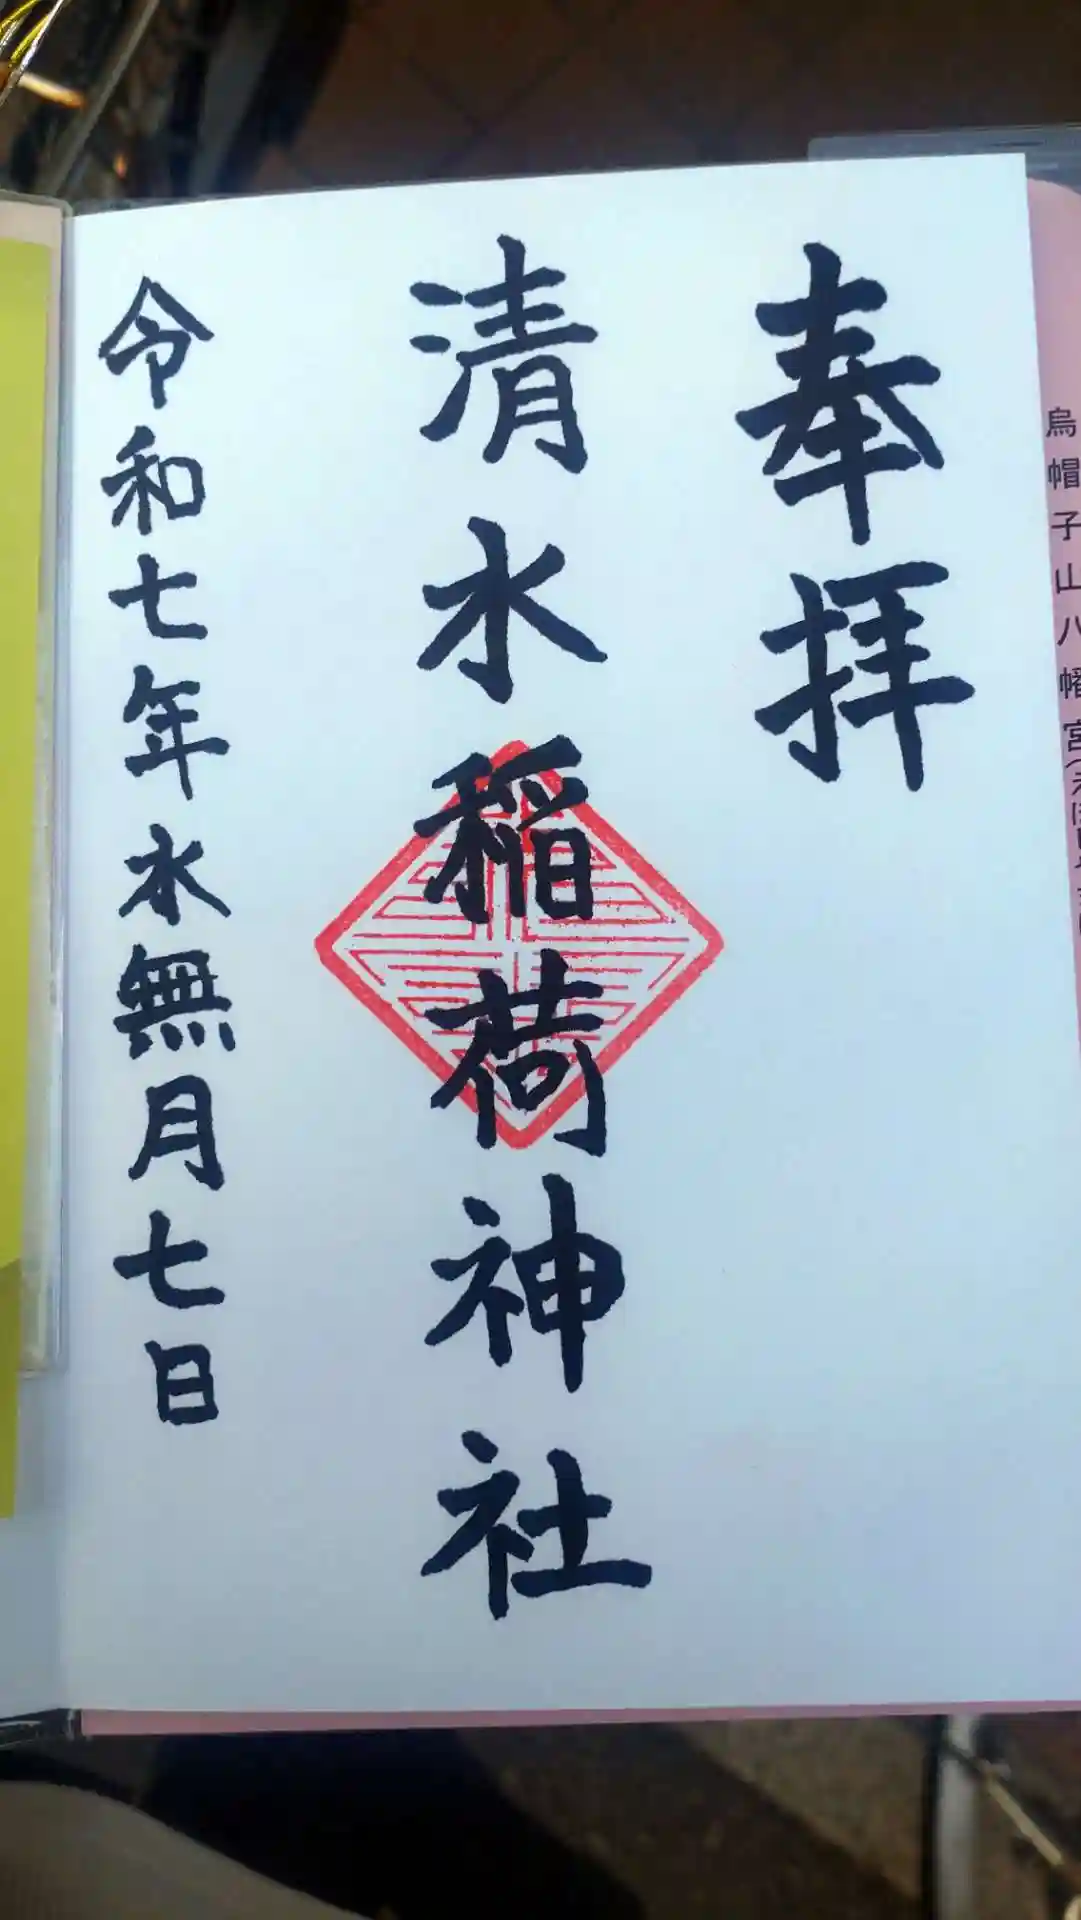 烏帽子山八幡宮
奉拝
清水稲荷神社
令和七年水無月七日